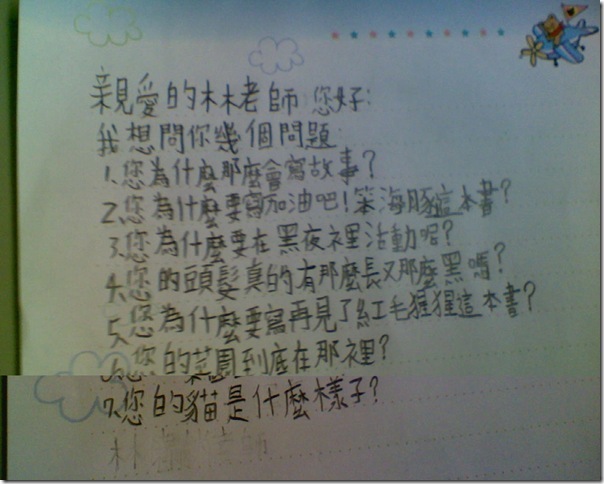 親愛的林老師 您好:
我想問你幾個問題:
1.您為什麼那麼會寫故事?
2.您為什麼要寫加油吧!笨海豚這本書?
3.您為什麼要在黑夜裡活動呢?
4.您的頭髮真的有那麼長又那麼黑嗎?
5.您為什麼要寫再見了紅毛猩猩這本書?
6.您的菜園到底在那裡?
7.您的貓是什麼樣子?